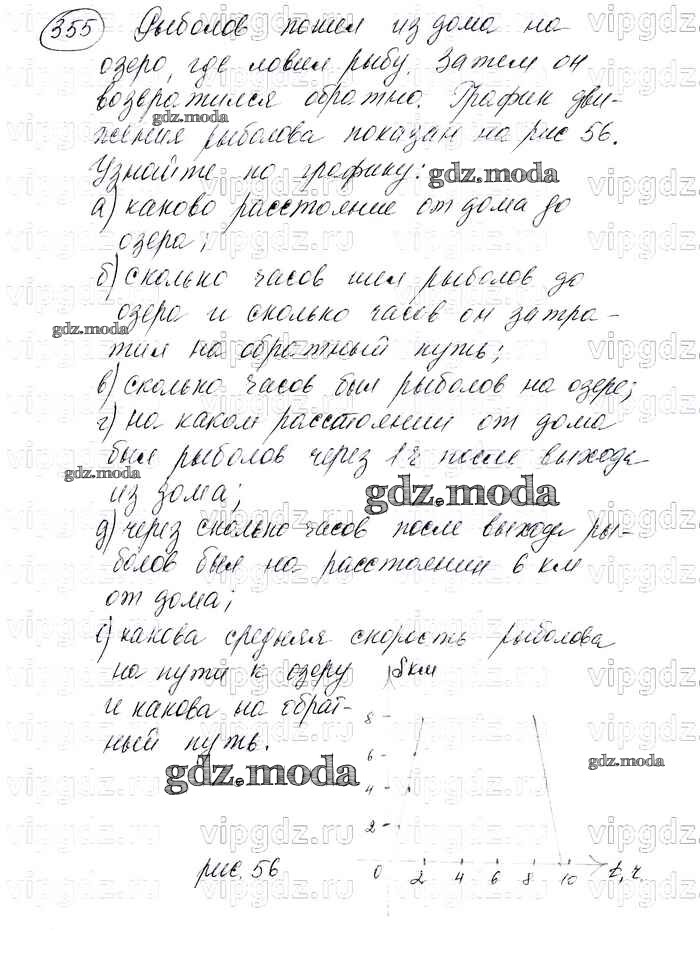 355 Рыболов пошел из дома на
озеро, где ловил рыбу. Затем он
возвратился обратно. График дви-
gdz.moda
жения рыболова показан на рис 56.
Узнайте по графику:
gdz.moda
а) каково расстояние от дома до
озера;
б) сколько часов шел рыболов до
озера и сколько часов он затра-
gdz.moda
тил на обратный путь;
в) сколько часов был рыболов на озере;
г) на каком расстоянии от дома
был рыболов через 1 ч после выхода
gdz.moda
из дома;
gdz.moda
д) через сколько часов после выхода ры-
болов был на расстоянии 6 км
от дома;
е) какова средняя скорость рыболова
на пути к озеру
и какова на обрат-
ный путь.
gdz.moda
gdz.moda
рис. 56
S км
8
6
4
2
0 2 4 6 8 10 t, ч.
vipgdz.ru